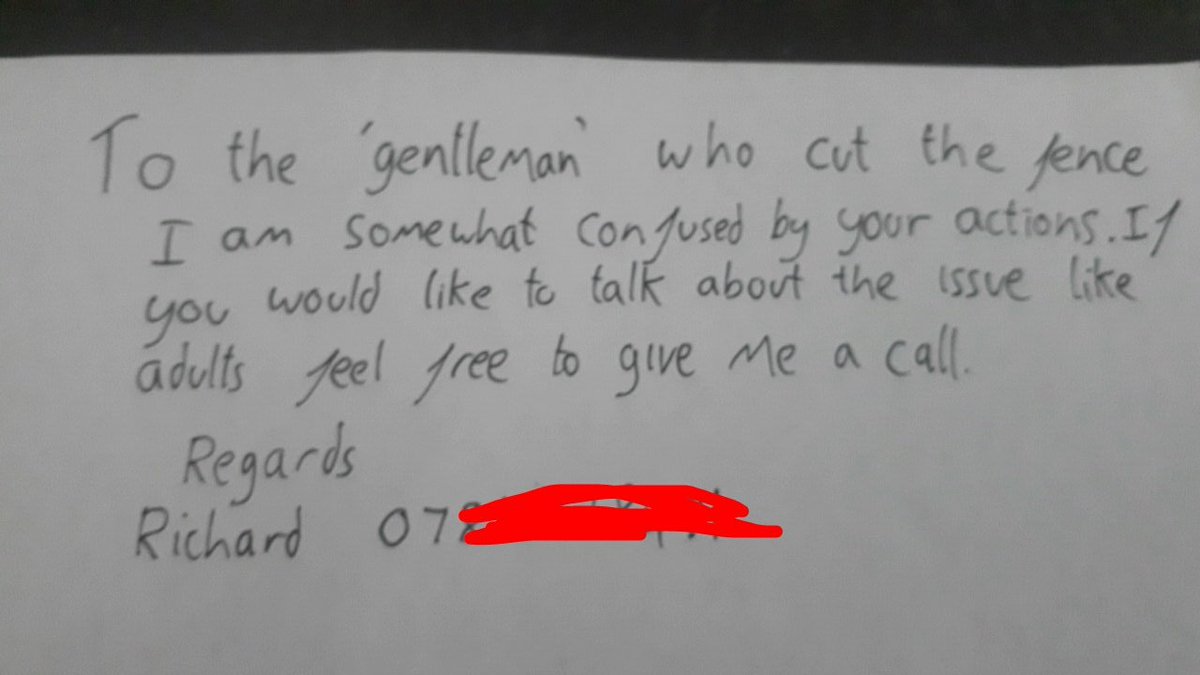 To the 'gentleman' who cut the fence
I am somewhat confused by your actions. If
you would like to talk about the issue like
adults feel free to give me a call.
Regards
Richard 07